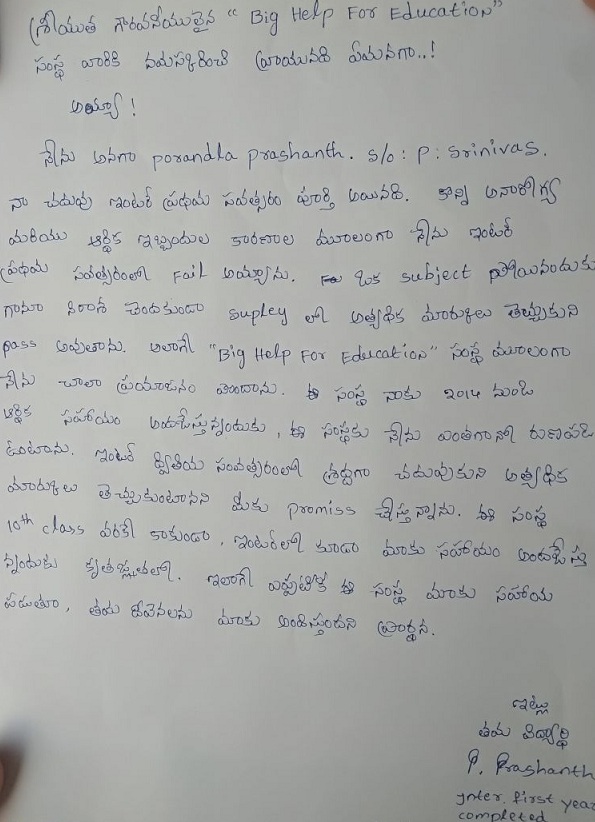 శ్రీయుత గౌరవనీయులైన "Big Help For Education"
సంస్థ వారికి నమస్కరించి వ్రాయునది ఏమనగా..!
అయ్యా!
నేను అనగా porandla prashanth. s/o: p: Srinivas.
నా చదువు ఇంటర్ ప్రథమ సంవత్సరం పూర్తి అయినది. కొన్ని అనారోగ్య
మరియు ఆర్థిక ఇబ్బందుల కారణాల మూలంగా నేను ఇంటర్
ప్రథమ సంవత్సరంలో Fail అయ్యాను. ఒక subject పోయినందుకు
గాను నిరాశ చెందకుండా supley లో అత్యధిక మార్కులు తెచ్చుకుని
pass అవుతాను. అలాగే "Big Help For Education" సంస్థ మూలంగా
నేను చాలా ప్రయోజనం పొందాను. ఈ సంస్థ నాకు 2014 నుండి
ఆర్థిక సహాయం అందజేస్తున్నందుకు, ఈ సంస్థకు నేను ఎంతగానో రుణపడి
ఉంటాను. ఇంటర్ ద్వితీయ సంవత్సరంలో శ్రద్ధగా చదువుకుని అత్యధిక
మార్కులు తెచ్చుకుంటానని మీకు promiss చేస్తున్నాను. ఈ సంస్థ
10th class వరకే కాకుండా, ఇంటర్‌లో కూడా మాకు సహాయం అందజేస్తు
న్నందుకు కృతజ్ఞతలో. ఇలాగే ఎప్పటికీ ఈ సంస్థ మాకు సహాయ
పడుతూ, తమ దీవెనలను మాకు అందిస్తుందని ప్రార్థన.
ఇట్లు
తమ విద్యార్థి
P. Prashanth
Inter first year
completed